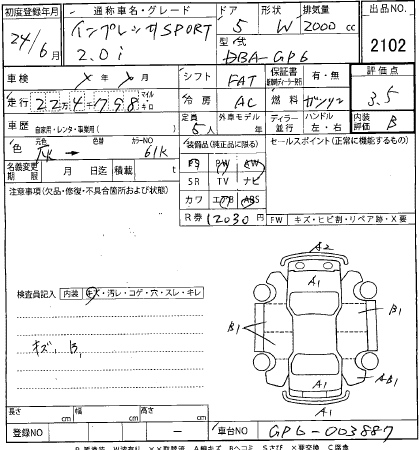 初度登録年月 通称車名・グレード ドア 形状 排気量 出品NO.
24/6月 インプレッサSPORT 5 W 2000 cc 2102
2.0i 型式 DBA-GP6
車検 X年 X月 シフト FAT 保証書 有・無 評価点
走行 22万4千798 マイル キロ 冷房 AC 燃料 ガソリン 3.5
車歴 自家用・レンタ・事業用( ) 定員 5人 外車モデル 年 ディーラー 並行 ハンドル 左・右 内装評価 B
色 元色 色替 カラーNO 61K 装備品(純正品に限る) セールスポイント(正常に機能するもの)
名義変更期限 月 日迄 積載 t PS PW AW
SR TV ナビ
注意事項(欠品・修復・不具合箇所および状態) カワ エアB ABS
R 12030円 FW キズ・ヒビ割・リペア跡・X要
A2
A1
検査員記入 内装 キズ・汚レ・コゲ・穴・スレ・キレ
キズ、B1 B1 A1 B1
A-B1
A1
A1
長さ cm 幅 cm 高さ cm
登録NO ー 車台NO GP6-003887